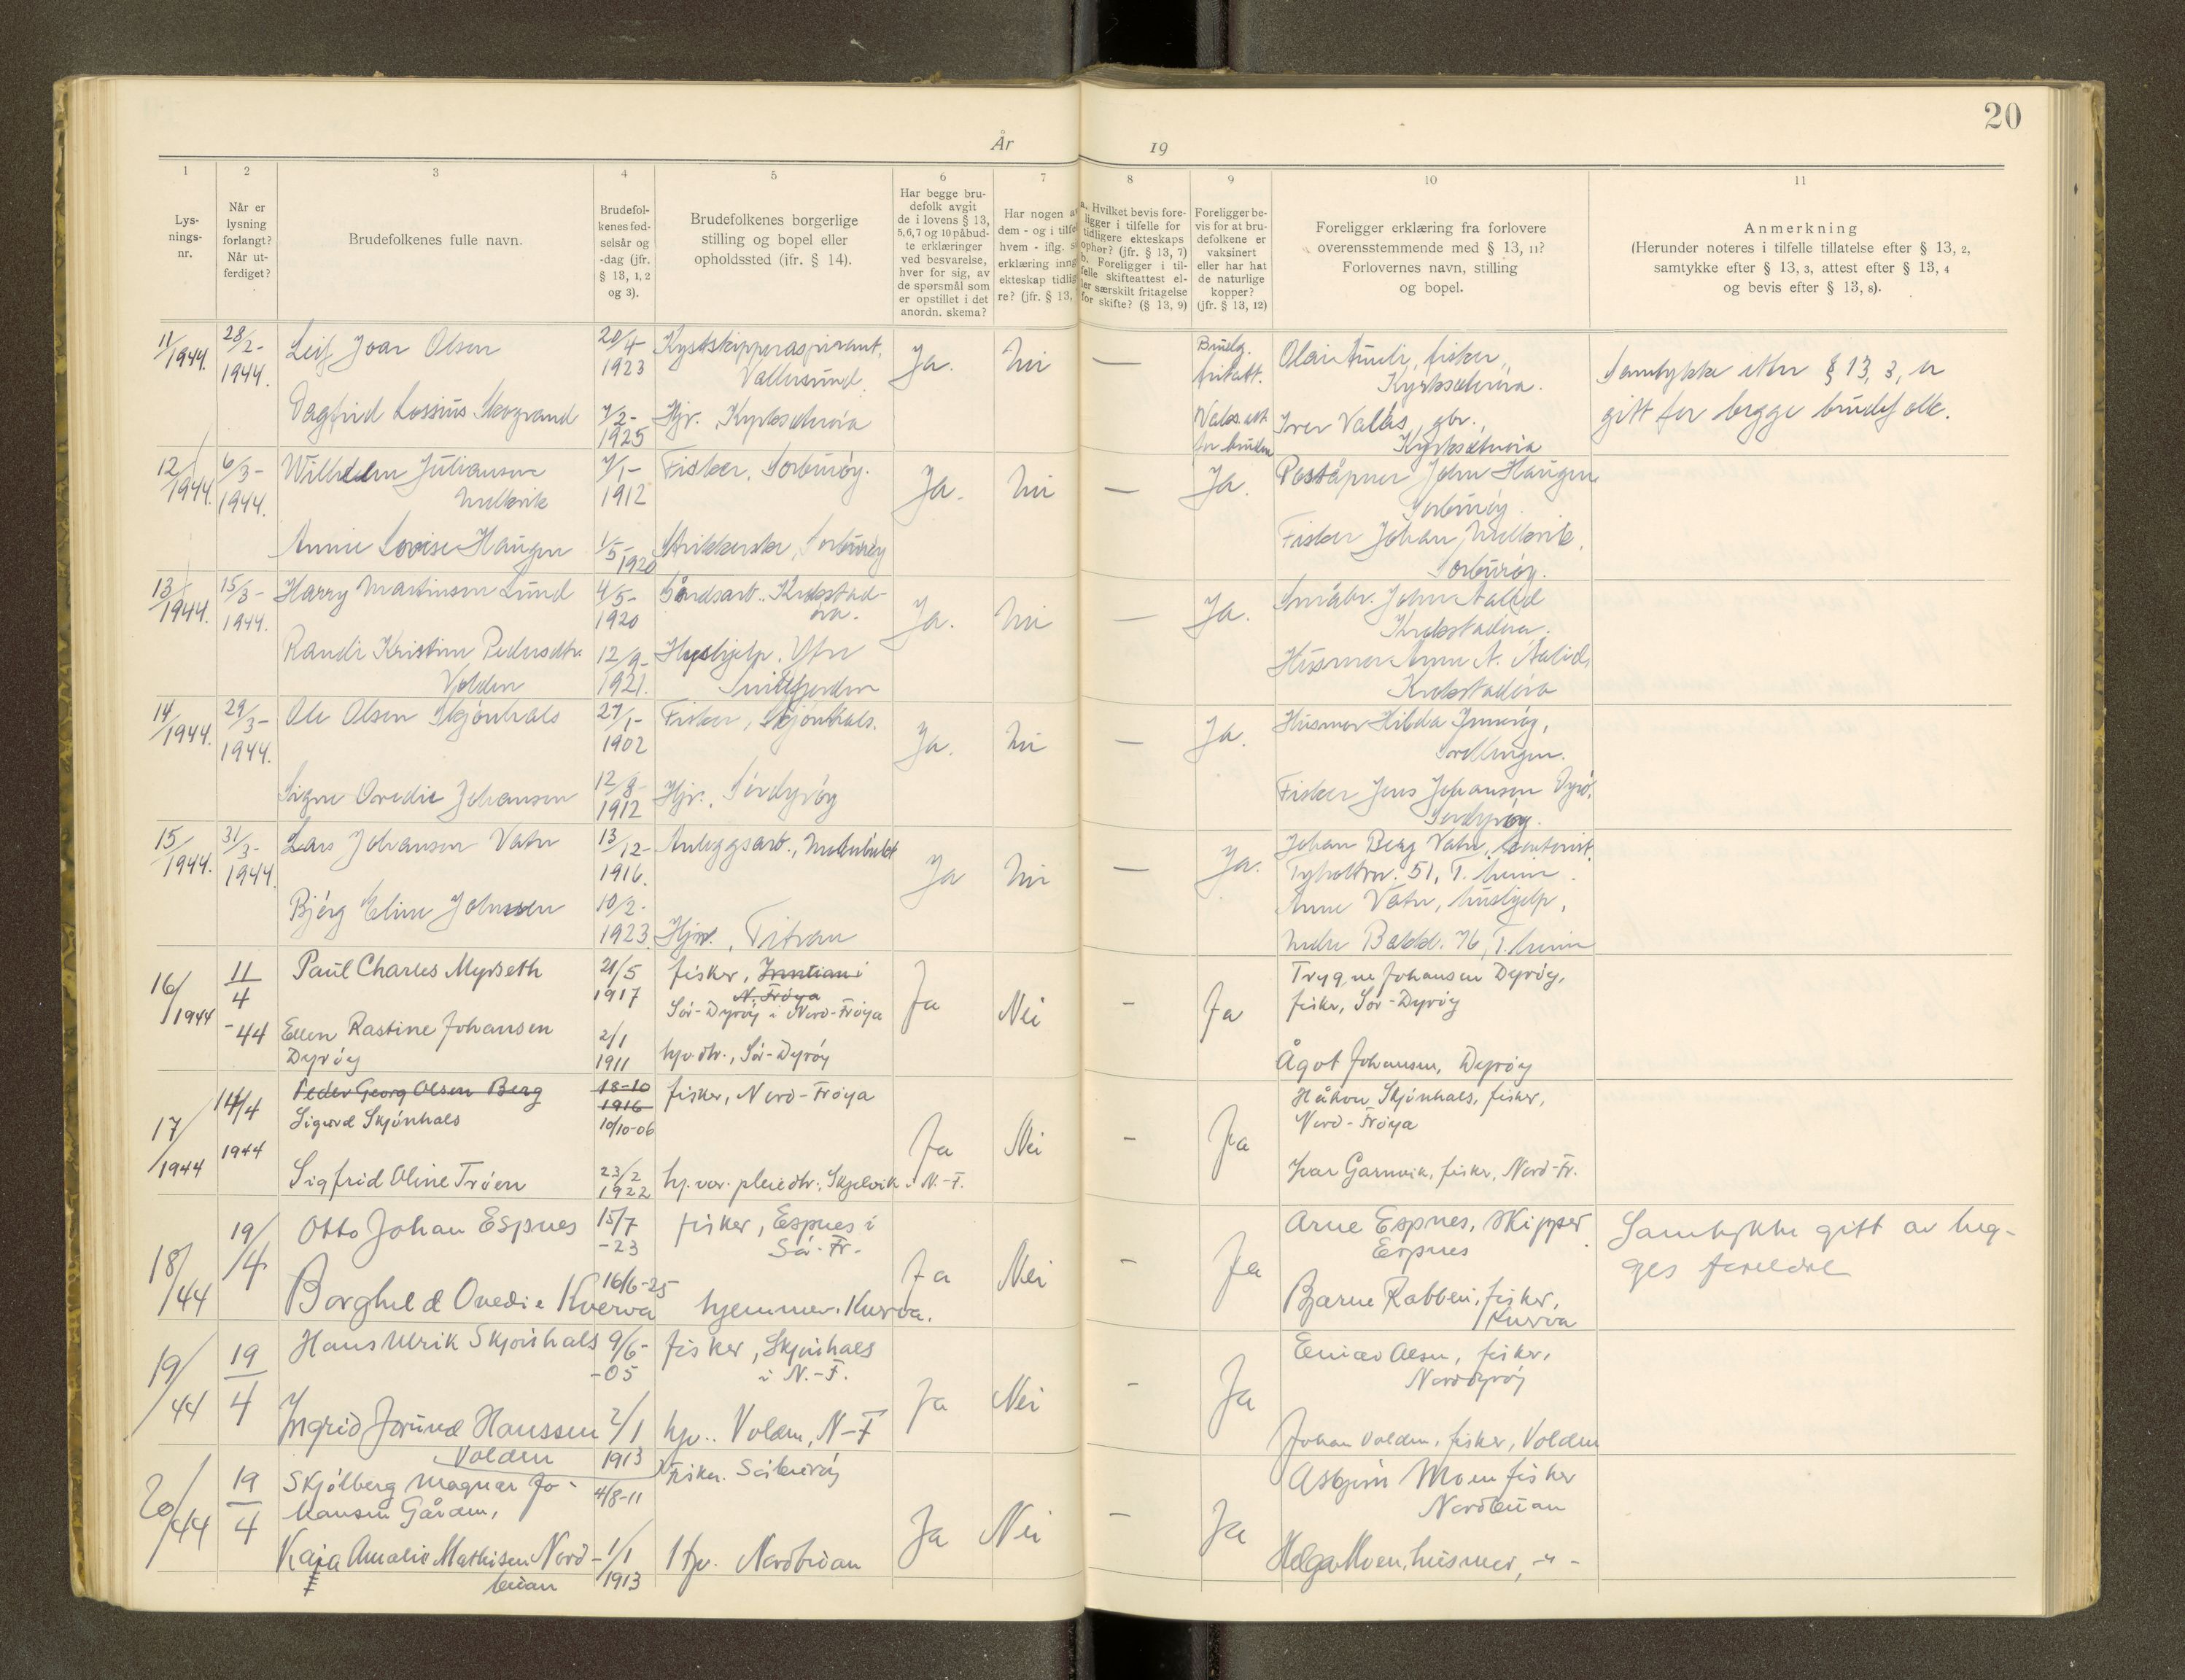 20
År 19
1 2 3 4 5 6 7 8 9 10 11
Lys-
nings-
nr.
Når er
lysning
forlangt?
Når ut-
ferdiget?
Brudefolkenes fulle navn.
Brudefol-
kenes fød-
selsår og
-dag (jfr.
§ 13, 1, 2
og 3).
Brudefolkenes borgerlige
stilling og bopel eller
opholdssted (jfr. § 14).
Har begge bru-
defolk avgit
de i lovens § 13,
5,6,7 og 10 påbud-
te erklæringer
ved besvarelse,
hver for sig, av
de spørsmål som
er opstillet i det
anordn. skema?
Har nogen a
dem - og i tilfe
hvem - iflg. s
erklæring inng
ekteskap tidlig
re? (jfr. § 13,
a. Hvilket bevis fore-
ligger i tilfelle for
tidligere ekteskaps
ophør? (jfr. § 13, 7)
b. Foreligger i til-
felle skifteattest el-
ler særskilt fritagelse
for skifte? (§ 13, 9)
Foreligger be-
vis for at bru-
defolkene er
vaksinert
eller har hat
de naturlige
kopper?
(jfr. § 13, 12)
Foreligger erklæring fra forlovere
overensstemmende med § 13, 11?
Forlovernes navn, stilling
og bopel.
Anmerkning
(Herunder noteres i tilfelle tillatelse efter § 13, 2,
samtykke efter § 13, 3, attest efter § 13, 4
og bevis efter § 13, 8).
11/1944. 28/2-1944. Leif Joar Olsen 20/4-1923 Kystskipperaspirant,
Vallersund.
Ja. Nei — Brudg.
fritatt.
fisker,
Kyrksæterøra.
Samtykke etter § 13, 3, er
gitt for begge brudefolk.
Dagfrid Lossius Skogrand 7/2-1925 Hjv. Kyrksæterøra
Vaks.att.
for bruden
Iver Valås, gbr.,
Kyrksæterøra
12/1944. 6/3-1944. Wilhelm Julianson
Mellvik
7/1-1912 Fisker, Sørburøy.
Ja. Nei — Ja. Poståpner John Haugen
Sørburøy
Annie Lovise Haugen 1/5-1920 Strikkerske, Sørburøy
Fisker Johan Mellvik,
Sørburøy.
13/1944. 15/3-1944. Harry Martinsen Lund 4/5-1920 Gårdsarb. Krokstad-
øra.
Ja. Nei — Ja. Småbr. John Aalid
Krokstadøra.
Randi Kristine Pedersdtr.
Volden
12/9-1921. Hushjelp. Ytre
Snillfjorden
Husmor Anne N. Aalid,
Krokstadøra
14/1944. 29/3-1944. Ole Olsen Skjønhals 27/1-1902 Fisker, Skjønhals.
Ja. Nei — Ja. Husmor Hilda Inntrøy,
Signe Ovedie Johansen 12/8-1912 Hjv., Sørdyrøy
Fisker Jens Johansen Dyrø,
Sørdyrøy.
15/1944. 31/3-1944. Lars Johansen Vatn 13/12-1916. Anleggsarb.,
Ja Nei — Ja. Johan Berg Vatn, kontorist,
Tyholtvn. 51, T.heim.
Bjørg Eline Johnsen 10/2-1923 Hjv., Titran
Anne Vatn, hushjelp,
Nedre Bakkl. 76, T.heim
16/1944 11/4-44 Paul Charles Myrseth 21/5 1917 fisker, Inntian i
N. Frøya
Sør-Dyrøy i Nord-Frøya
Ja Nei - Ja Trygve Johansen Dyrøy,
fisker, Sør-Dyrøy
Ellen Kastine Johansen
Dyrøy
2/1 1911 hjv. dtr., Sør-Dyrøy
Ågot Johansen, Dyrøy
17/1944 14/4 1944 Peder Georg Olsen Berg 18-10 1916
Sigurd Skjønhals 10/10-06 fisker, Nord-Frøya
Ja Nei - Ja Håkon Skjønhals, fisker,
Nord-Frøya
Sigfrid Oline Trøen 23/2 1922 hj.vær. pleiedtr., Skjelvik i N.-F.
Ivar Garnvik, fisker, Nord-Fr.
18/44 19/4 Otto Johan Espnes 15/7-23 fisker, Espnes i
Sø.-Fr.
Ja Nei - Ja Arne Espnes, skipper
Espnes
Samtykke gitt av beg-
ges foreldre
Borghild Ovedie Kverva 16/6-25 hjemmev. Kverva.
Bjarne Rabben, fisker,
Kverva
19/44 19/4 Hans Ulrik Skjønhals 9/6-05 fisker, Skjønhals
i N.-F.
Ja Nei - Ja Einar Olsen, fisker,
Norddyrøy
Ingrid Jorund Hanssen
Volden
2/1 1913 hjv. Volden, N-F
Johan Volden, fisker, Volden
20/44 19/4 Skjølberg Magnar Jo-
hansen Gården,
4/8-11 Fisker. Sørburøy
Ja Nei - Ja Asbjørn Moen fisker
Nordbuan
Kaja Amalie Mathisen Nord-
buan
1/1 1913 Hjv. Nordbuan
Helga Moen, husmor, -"-